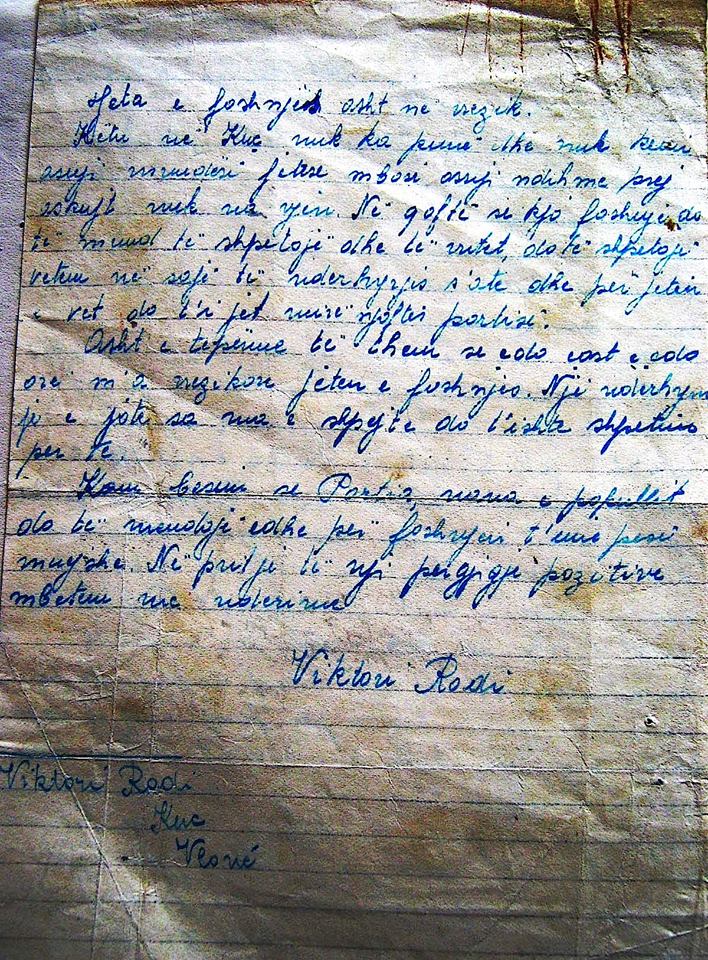 Jeta e foshnjës asht në rrezik.
Këtu në Kuç nuk ka punë dhe nuk kemi
asnji mundësi jetese mbasi asnji ndihmë prej
askujt nuk na vjen. Në qoftë se kjo foshnje do
të mund të shpetojë dhe të rritet, do të shpetojë
vetëm në sajë të nderhyrjes s'ate dhe për jeten
e vet do t'i jet mirënjoftës partisë.
Asht e tepërme të them se çdo çast e çdo
orë m a rrezikon jeten e foshnjes. Nji nderhym
je e jote sa ma e shpejtë do t'ishte shpetim
për te.
Kam besim se Partia, nana e popullit
do të mendojë edhe për foshnjen t'eme pesë
muejshe. Në pritje të nji pergjigje pozitive
mbetem me nderime
Viktori Radi
Viktori Radi
Kuç
Vlonë